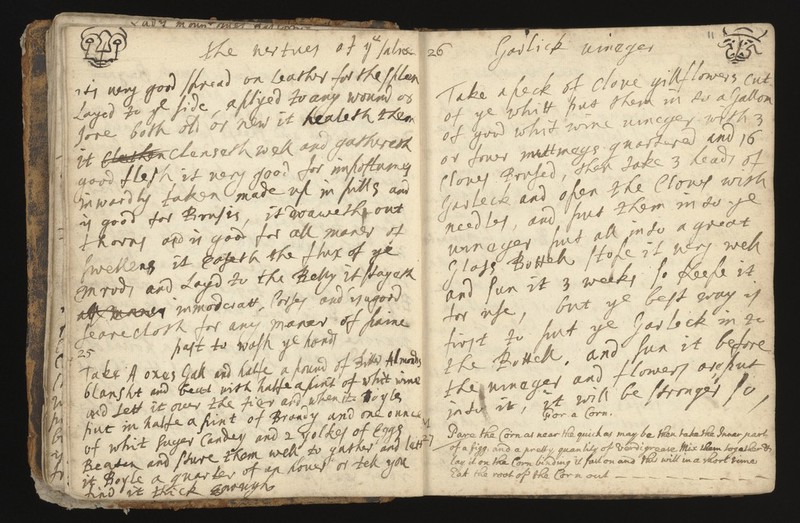 the vertues of ye salve
it is very good spread on leather for the spleen
Layed to ye side, aplyed to any wound or
sore both old or new it healeth them
it Clenseth well and gathereth
good flesh it very good for impostumes
inwardly taken made up in pills and
is good for Brusis, it draweth out
thorns and is good for all maner of
swellens it easeth the flux of ye
and Layd to the Belly it stayeth
inmoderatt Corses and is good
searecloth for any maner of paine
25
past to wash ye hands
Take A oxes Gall and halfe a pound of Almonds
blansht and beat with halfe a pint of whit wine
and sett it over the fier and when it Boyls
put in halfe a pint of Brandy and one ounce
of whit suger Candey and 2 yolkes of eggs
Beaten and sture them well to gather and lett
it Boyle a quarter of an hower or tell you
find it thick enough
26
Garlick vineger
11
Take a peck of Clove gillflowers Cut
of ye whitt put them in to a Gallon
of good whit wine vineger with 3
or fower nuttmegs quartered and 16
Cloves Brused, then take 3 heads of
Garleck and open the Cloves with
needles, and put them in to ye
vineger put all into a great
Glass Bottell stope it very well
and sun it 3 weeks so keepe it
for use, but ye best way is
first to put ye Garleck in to
the Bottell, and sun it before
the vineger and flowers are put
into it, it will be stronger so
For a Corn.
Pare the Corn as near the quick as may be then take the Inner part
of a figg, and a pretty quantity of verdigrease Mix them together &
lay it on the Corn binding it fast on and this will in a short time
Eat the root of the Corn out